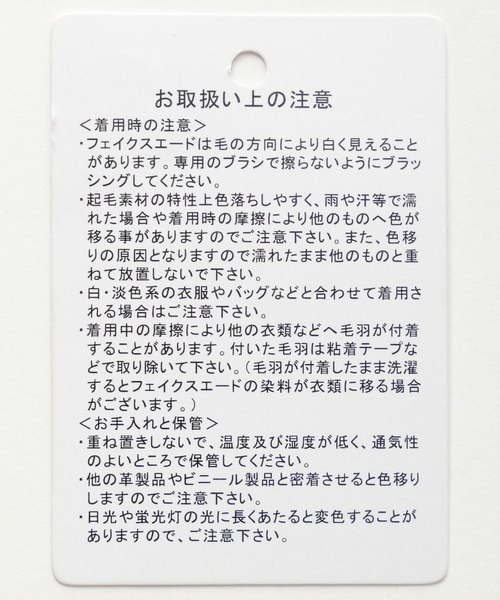 お取扱い上の注意
＜着用時の注意＞
・フェイクスエードは毛の方向により白く見えること
があります。専用のブラシで擦らないようにブラッ
シングしてください。
・起毛素材の特性上色落ちしやすく、雨や汗等で濡
れた場合や着用時の摩擦により他のものへ色が
移る事がありますのでご注意下さい。また、色移
りの原因となりますので濡れたまま他のものと重
ねて放置しないで下さい。
・白・淡色系の衣服やバッグなどと合わせて着用さ
れる場合はご注意下さい。
・着用中の摩擦により他の衣類などへ毛羽が付着
することがあります。付いた毛羽は粘着テープな
どで取り除いて下さい。（毛羽が付着したまま洗濯
するとフェイクスエードの染料が衣類に移る場合
がございます。）
＜お手入れと保管＞
・重ね置きしないで、温度及び湿度が低く、通気性
のよいところで保管してください。
・他の革製品やビニール製品と密着させると色移り
しますのでご注意下さい。
・日光や蛍光灯の光に長くあたると変色することが
ありますので、ご注意下さい。